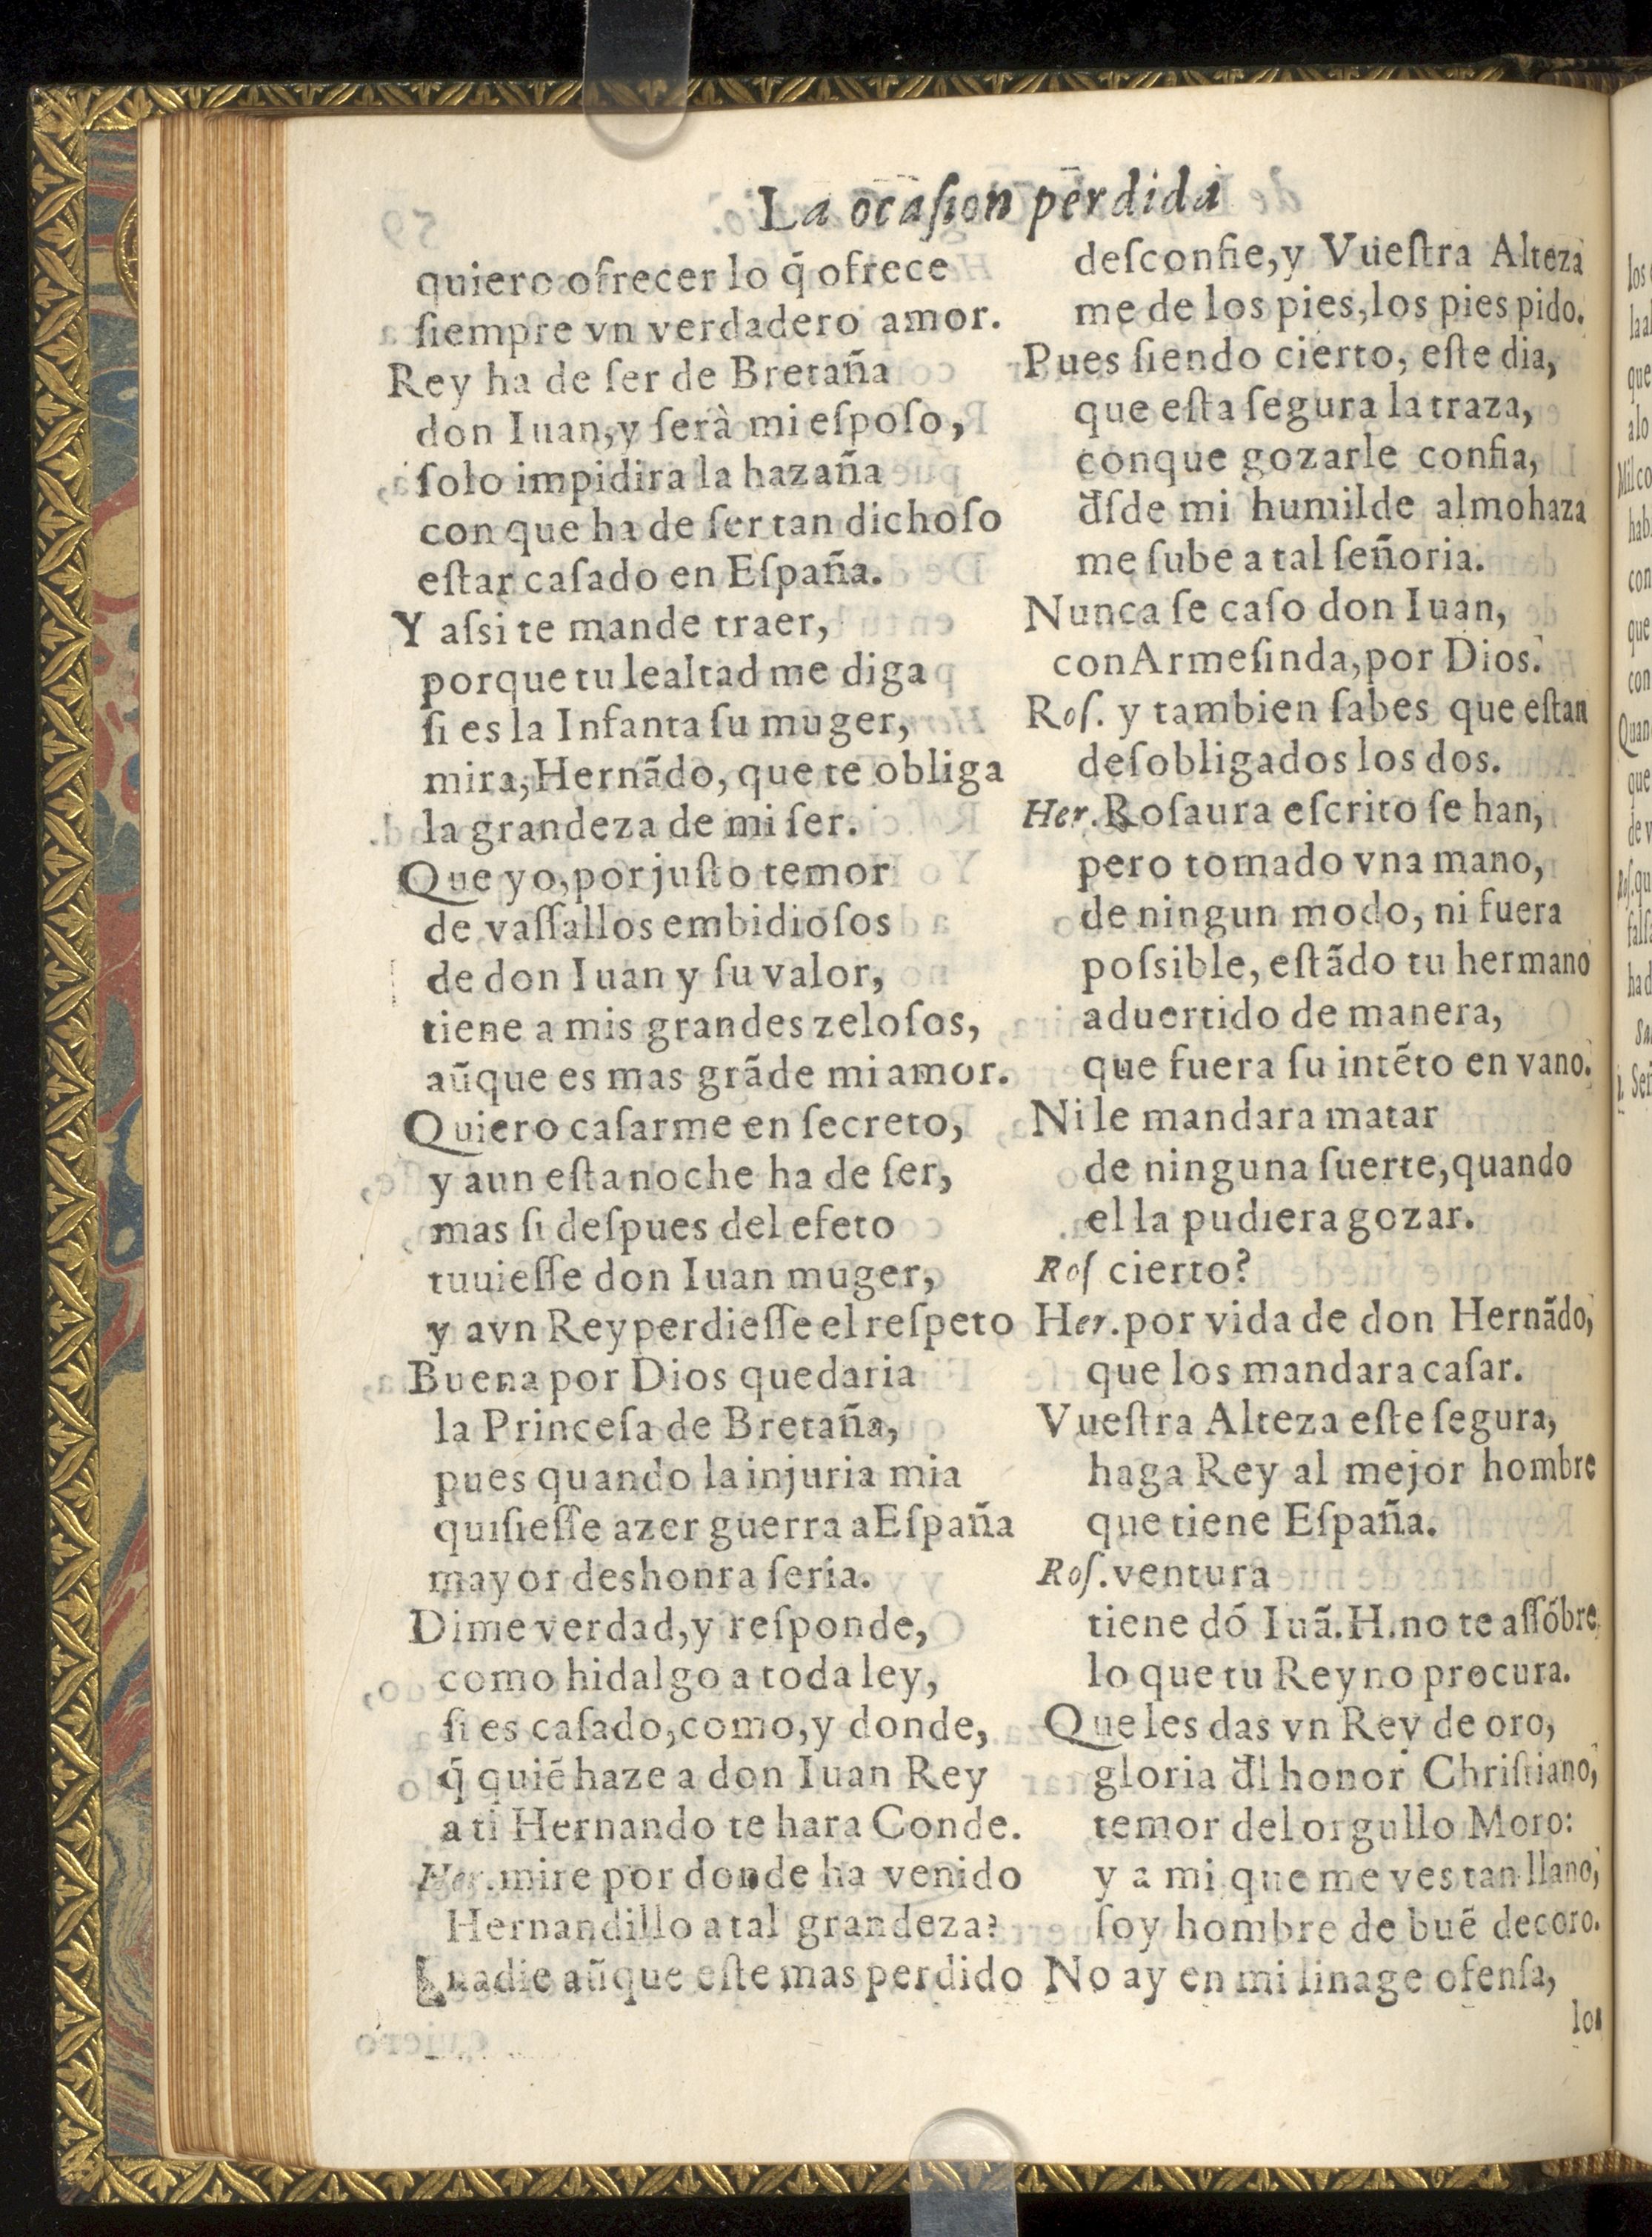 La ocaſion perdida
quiero ofrecer lo q̃ ofrece
ſiempre vn verdadero amor.
Rey ha de ſer de Bretaña
don Iuan, y ſerà mi eſpoſo,
ſolo impidira la hazaña
con que ha de ſer tan dichoſo
eſtar caſado en Eſpaña.
Y aſsi te mande traer,
porque tu lealtad me diga
ſi es la Infanta ſu muger,
mira, Hernãdo, que te obliga
la grandeza de mi ſer.
Que yo, por juſto temor
de vaſſallos embidioſos
de don Iuan y ſu valor,
tiene a mis grandes zeloſos,
aũque es mas grãde mi amor.
Quiero caſarme en ſecreto,
y aun eſta noche ha de ſer,
mas ſi deſpues del efeto
tuuieſſe don Iuan muger,
y avn Rey perdieſſe el reſpeto
Buena por Dios quedaria
la Princeſa de Bretaña,
pues quando la injuria mia
quiſieſſe azer guerra a Eſpaña
mayor deshonra ſeria.
Dime verdad, y reſponde,
como hidalgo a toda ley,
ſi es caſado, como, y donde,
q̃ quiẽ haze a don Iuan Rey
a ti Hernando te hara Conde.
Her. mire por donde ha venido
Hernandillo a tal grandeza?
nadie aũque eſte mas perdido
deſconfie, y Vueſtra Alteza
me de los pies, los pies pido.
Pues ſiendo cierto, eſte dia,
que eſta ſegura la traza,
conque gozarle confia,
đſde mi humilde almohaza
me ſube a tal ſeñoria.
Nunca ſe caſo don Iuan,
con Armeſinda, por Dios.
Roſ. y tambien ſabes que eſtan
deſobligados los dos.
Her. Roſaura eſcrito ſe han,
pero tomado vna mano,
de ningun modo, ni fuera
poſsible, eſtãdo tu hermano
aduertido de manera,
que fuera ſu intẽto en vano.
Ni le mandara matar
de ninguna ſuerte, quando
el la pudiera gozar.
Roſ cierto?
Her. por vida de don Hernãdo,
que los mandara caſar.
Vueſtra Alteza eſte ſegura,
haga Rey al mejor hombre
que tiene Eſpaña.
Roſ. ventura
tiene dó Iuã. H. no te aſſóbre
lo que tu Reyno procura.
Que les das vn Rey de oro,
gloria đl honor Chriſtiano,
temor del orgullo Moro:
y a mi que me ves tan llano,
ſoy hombre de buẽ decoro.
No ay en mi linage ofenſa,
los